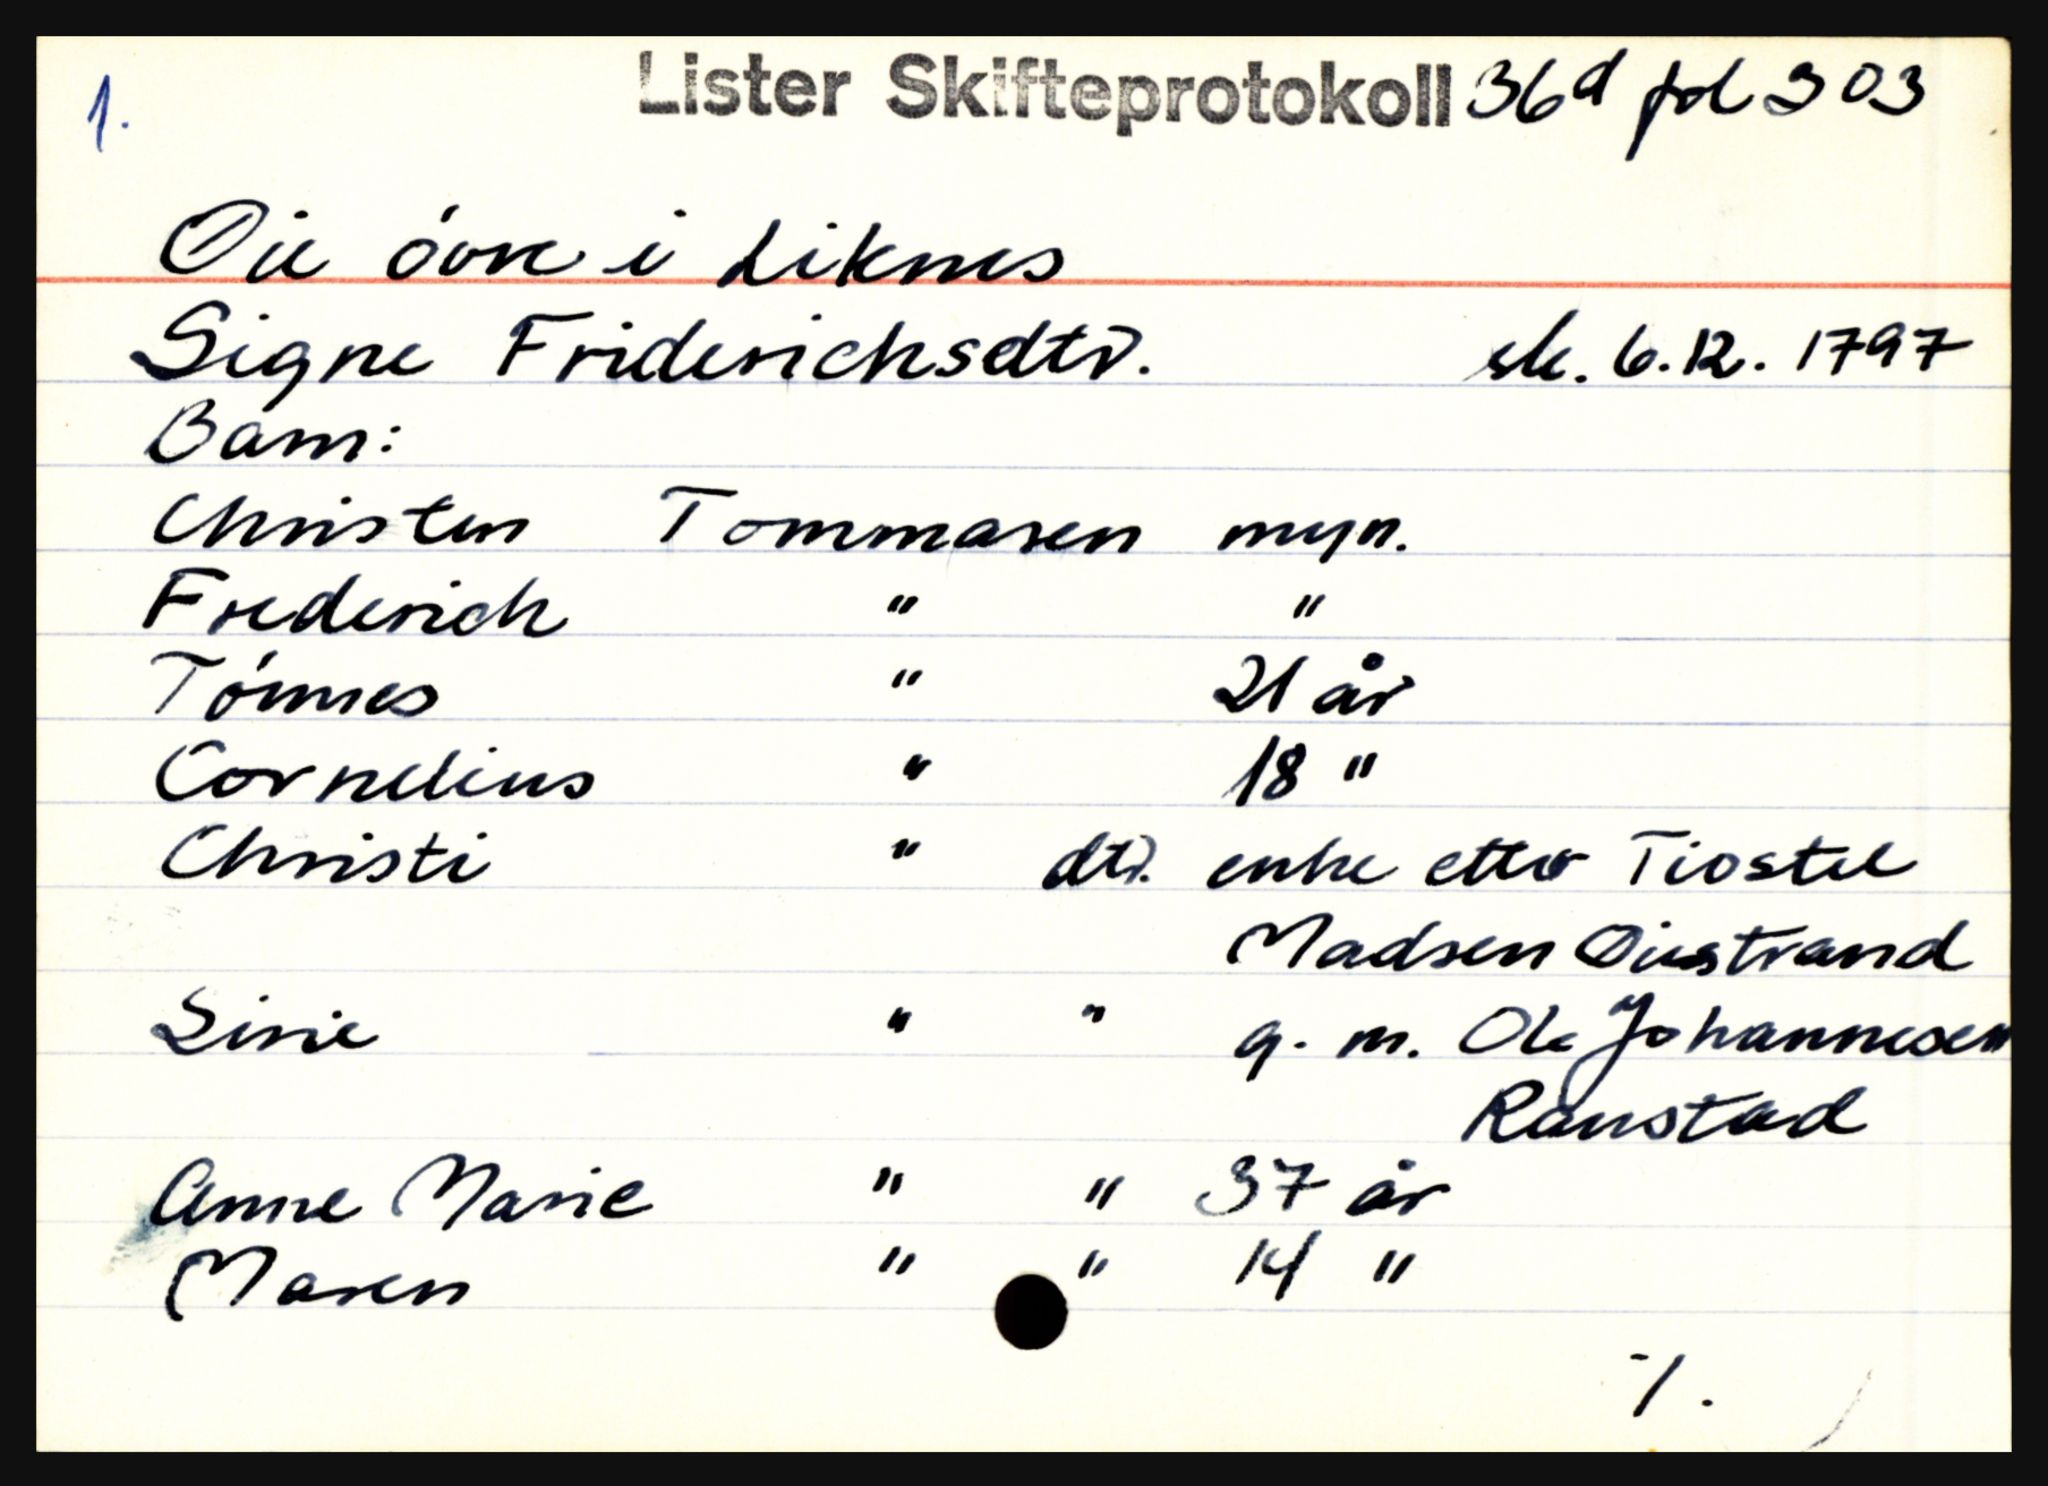 1. Lister Skifteprotokoll 36d fol 303
Øie óvre i Liknes
Signe Friderichsdtr. sk. 6.12.1797
Barn:
Christen Tommasen myn.
Frederich " "
Tónnes " 21 år
Cornelius " 18 "
Christi " dtr. enke etter Tiostel
Madsen Øiestrand
Sirie " " g. m. Ole Johannesen
Raustad
Anne Marie " " 37 år
Maren " " 14 "
./.